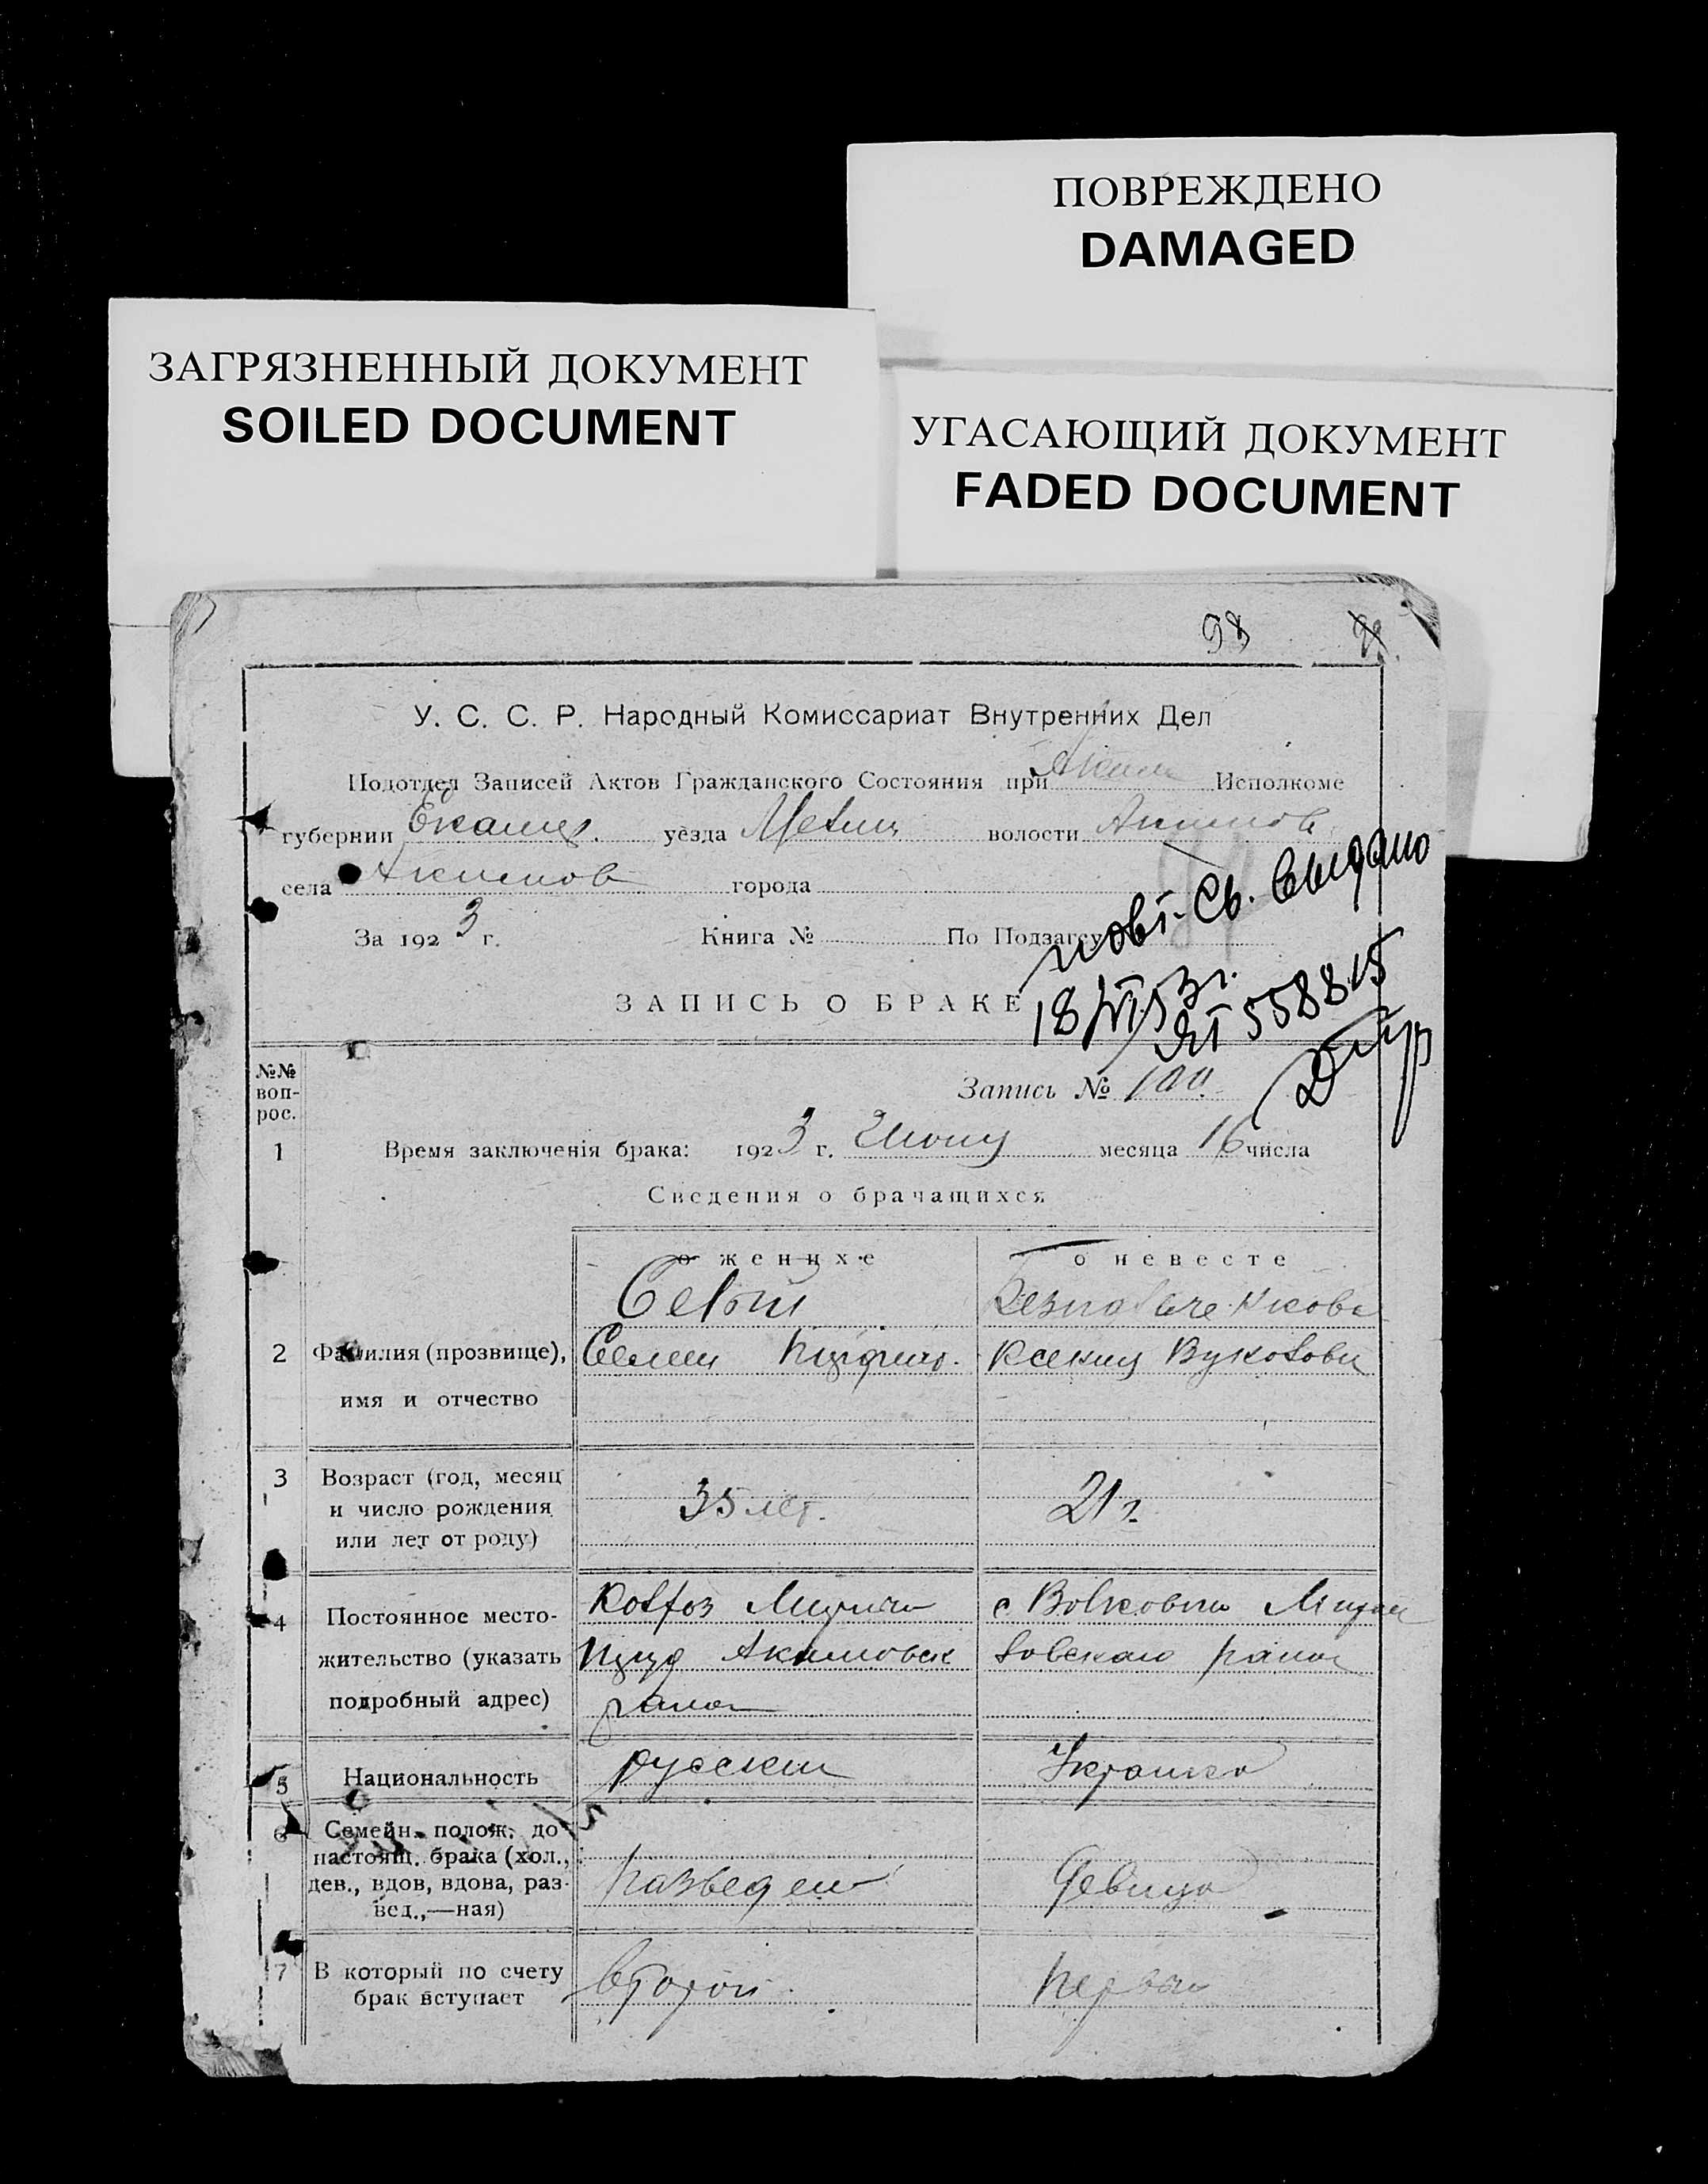 ПОВРЕЖДЕНО
DAMAGED
ЗАГРЯЗНЕННЫЙ ДОКУМЕНТ
SOILED DOCUMENT
УГАСАЮЩИЙ ДОКУМЕНТ
FADED DOCUMENT
98
У. С. С. Р. Народный Комиссариат Внутренних Дел
Подотдел Записей Актов Гражданского Состояния при Аким Исполкоме
губернии Екатер. уезда Мелит волости Акимов
села Акимов города
За 1923 г. Книга № По Подзагсу
повт. Св. выдано
18/VI 53 г.
ЯТ 558815
ЗАПИСЬ О БРАКЕ
№№ воп-рос.
Запись № 100.
1 Время заключенія брака: 1923 г. Июня месяца 16 числа
Сведения о брачащихся
о женихе о невесте
2 Фамилия (прозвище),
имя и отчество
3 Возраст (год, месяц
и число рождения
или лет от роду)
35 лет. 21 г.
4 Постоянное место-
жительство (указать
подробный адрес)
Акимовск
района
района
5 Национальность русский Украинка
6 Семейн. полож. до
настоящ. брака (хол.,
дев., вдов, вдова, раз-
вед.,—ная)
Разведен Девица
7 В который по счету
брак вступает
второй. первый